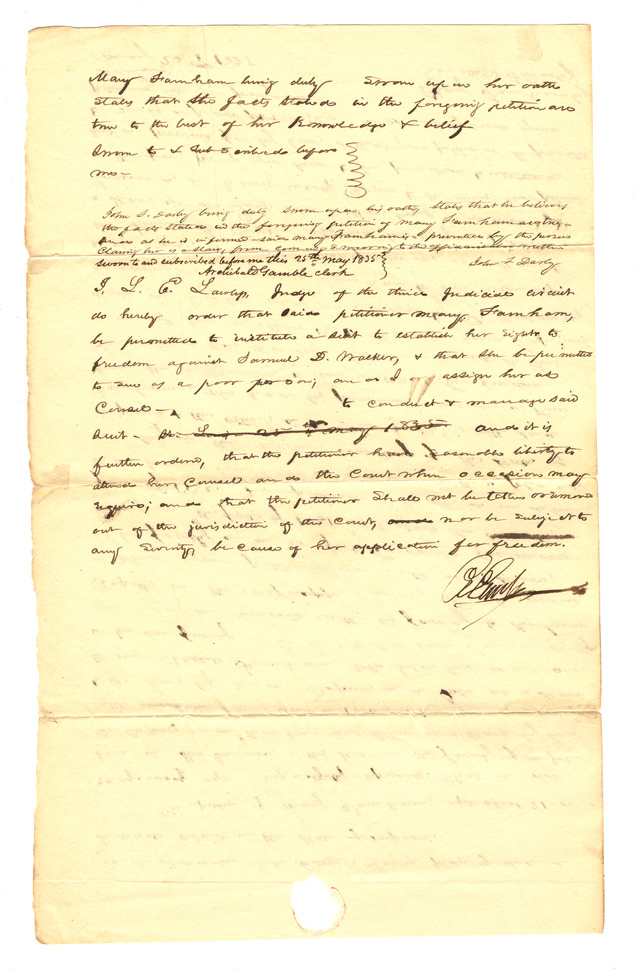 Mary Farnham being duly Sworn upon her oath
States that the facts Stated in the foregoing petition are
true to the best of her Knowledge & belief
Sworn to & Subscribed before
me —
John F. Darby being duly sworn upon his oath, states that he believes
the facts stated in the foregoing petition of Mary Farnham are true
as he is informed said Mary Farnham is prevented by the person
Claiming her as a slave, from coming & swearing to the
sworn to and subscribed before me this 25th May 1835
John F Darby
Archibald Gamble clerk
I, L. E. Lawless, Judge of the third Judicial circuit
do hereby order that said petitioner Mary Farnham,
be permitted to institute a suit to establish her right to
freedom against Samuel D. Walker, & that she be permitted
to sue as a poor person; and I assign her as
Counsel — to conduct & manage said
Suit — St. Louis 25th May 1835 and it is
further ordered, that the petitioner have reasonable liberty to
attend her Counsel and the Court when occasion may
require; and that the petitioner shall not be taken or removed
out of the jurisdiction of the Court, and nor be subject to
any severity, because of her application for freedom.